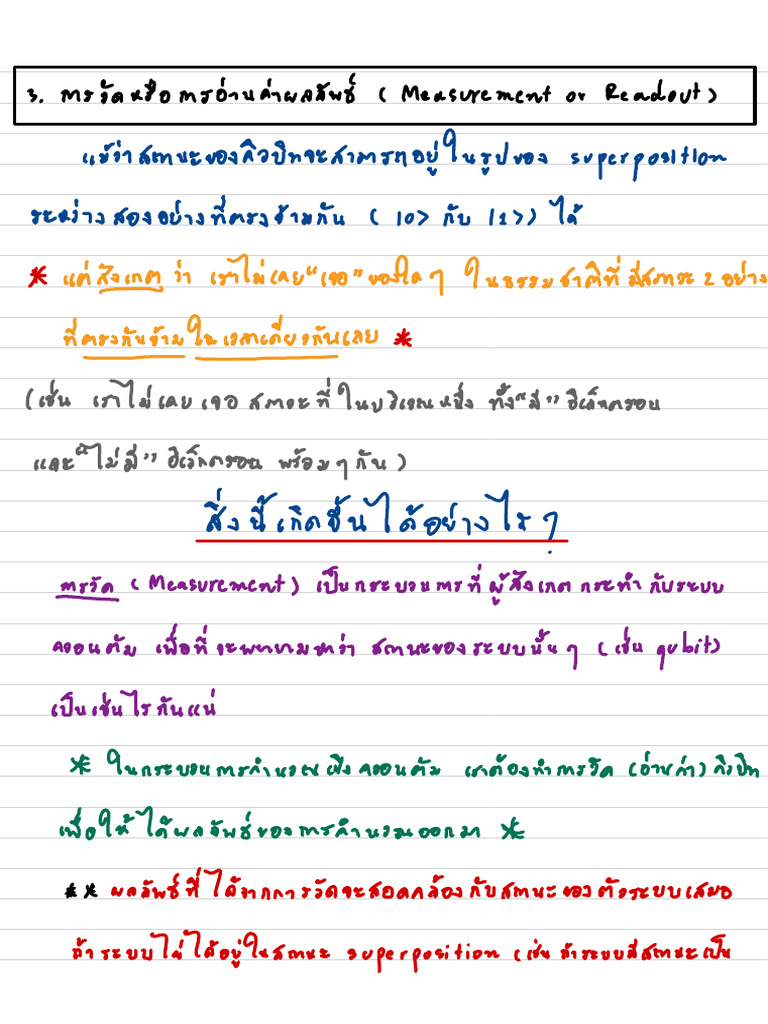 3. การวัดหรือการอ่านค่าผลลัพธ์ ( Measurement or Readout )
แม้ว่าสถานะของคิวบิทจะสามารถอยู่ในรูปของ superposition
ระหว่างสองอย่างที่ตรงข้ามกัน ( |0> กับ |1> ) ได้
* แต่สังเกตว่า เราไม่เคย "เจอ" ของใดๆ ในธรรมชาติที่มีสภาวะ 2 อย่าง
ที่ตรงกันข้ามในเวลาเดียวกันเลย *
(เช่น เราไม่เคยเจอ สภาวะที่ในบริเวณหนึ่ง ทั้ง"มี" อิเล็กตรอน
และ"ไม่มี" อิเล็กตรอน พร้อมๆกัน)
สิ่งนี้เกิดขึ้นได้อย่างไร?
การวัด (Measurement) เป็นกระบวนการที่ผู้สังเกตกระทำกับระบบ
ควอนตัม เพื่อที่จะพยายามหาว่า สถานะของระบบนั้นๆ (เช่น qubit)
เป็นเช่นไรกันแน่
* ในกระบวนการคำนวณเชิงควอนตัม เราต้องทำการวัด (อ่านค่า) คิวบิท
เพื่อให้ได้ผลลัพธ์ของการคำนวณออกมา *
** ผลลัพธ์ที่ได้จากการวัดจะสอดคล้องกับสถานะของตัวระบบเสมอ
ถ้าระบบไม่ได้อยู่ในสถานะ superposition (เช่น ถ้าระบบมีสถานะเป็น